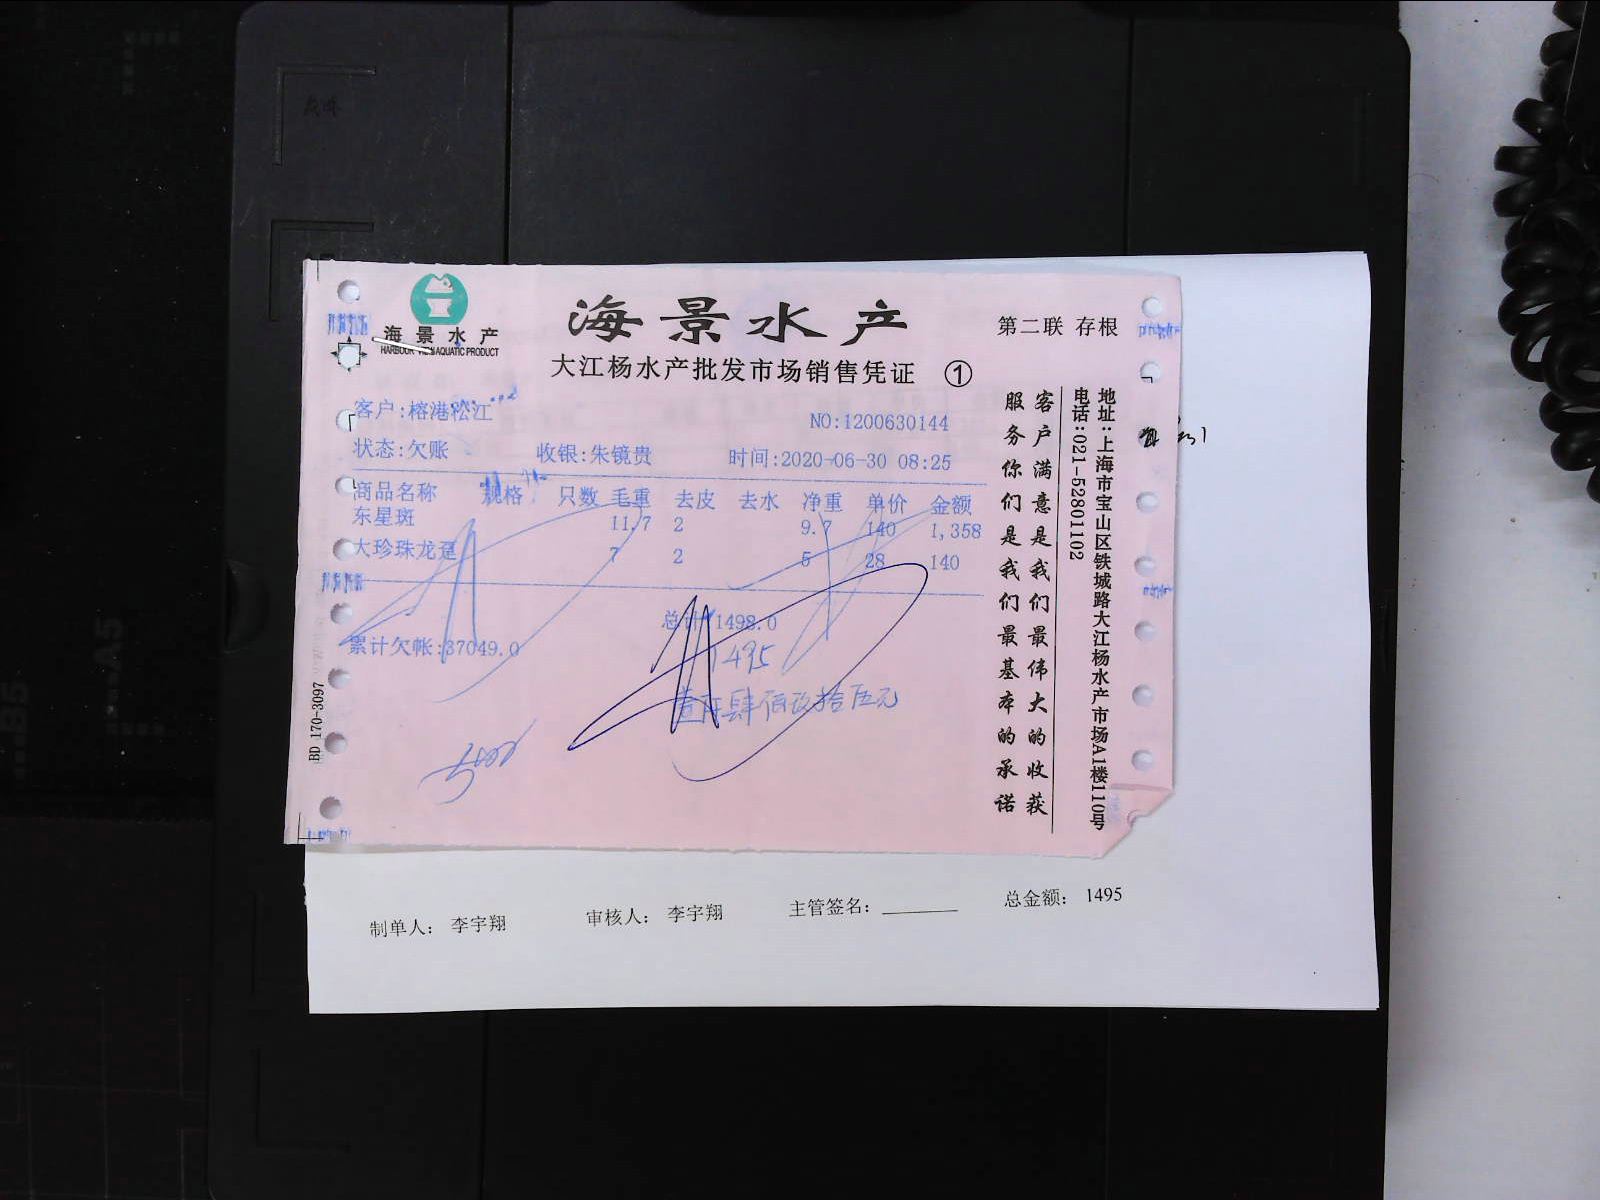 海景水产
HARBOUR VIEW AQUATIC PRODUCT
海景水产
第二联 存根
大江杨水产批发市场销售凭证 ①
客户:榕港松江
NO:1200630144
状态:欠账 收银:朱镜贵 时间:2020-06-30 08:25
商品名称 规格 只数 毛重 去皮 去水 净重 单价 金额
东星斑 11.7 2 9.7 140 1,358
大珍珠龙趸 7 2 5 28 140
总计 1498.0
累计欠帐:37049.0
1495
壹仟肆佰玖拾伍元
客户满意是我们最伟大的收获
服务你们是我们最基本的承诺
地址:上海市宝山区铁城路大江杨水产市场A1楼110号
电话:021-52801102
BD 170-3097
制单人: 李宇翔 审核人: 李宇翔 主管签名: 总金额: 1495